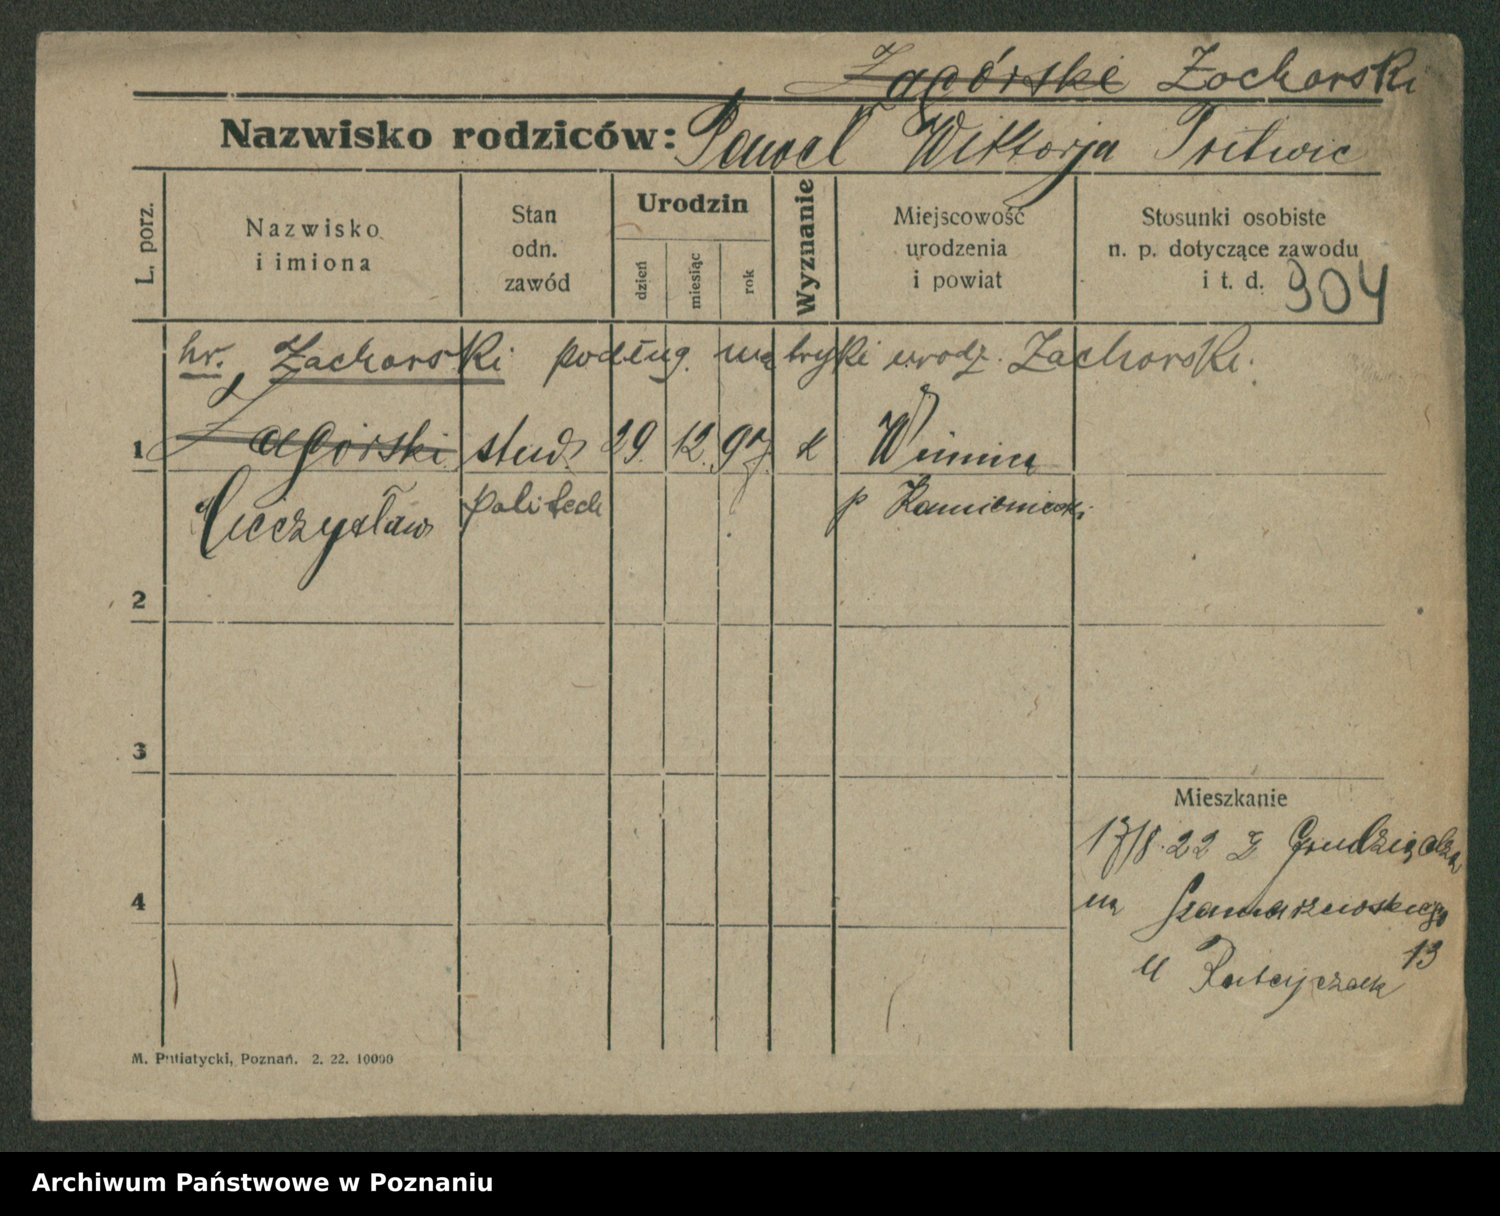 Zagórski Zochorski
Nazwisko rodziców: Paweł Wiktorja Tritwic
L. porz.
Nazwisko
i imiona
Stan
odn.
zawód
Urodzin
dzień
miesiąc
rok
Wyznanie
Miejscowość
urodzenia
i powiat
Stosunki osobiste
n. p. dotyczące zawodu
i t. d. 904
hr. Zachorski podług matryki urodz. Zachorski.
1 Zagórski stud. 29. 12. 97 k Winnica
Mieczysław politech p
2
3
Mieszkanie
17/8. 22 z Grudziądza
4
na Szamarzewskiego
13
u Ratajczak
M. Putiatycki, Poznań. 2. 22. 10000
Archiwum Państwowe w Poznaniu